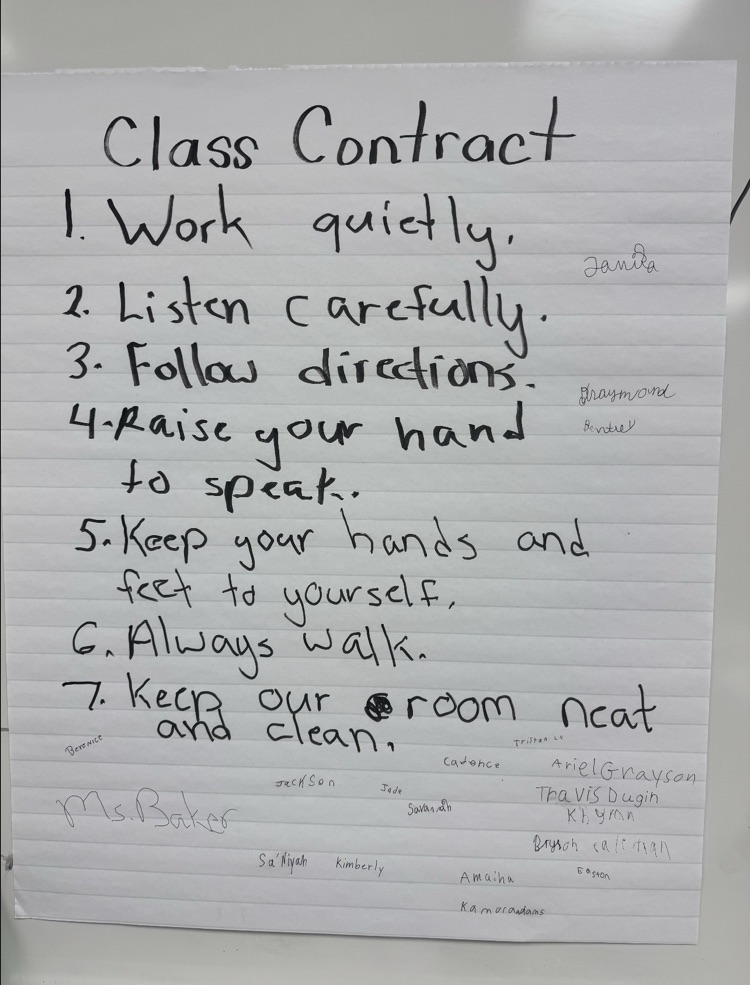 Class Contract
1. Work quietly.
Janiya
2. Listen carefully.
3. Follow directions.
4. Raise your hand
Bentley
to speak.
5. Keep your hands and
feet to yourself.
6. Always walk.
7. Keep our room neat
and clean.
Berenice
Tristan
Cadence
Ariel Grayson
Jackson
Jade
Travis Dugin
Savannah
Ms. Baker
Khymn
Bryson
Sa'Niyah
Kimberly
Easton
Amaiha
Kamaraadams